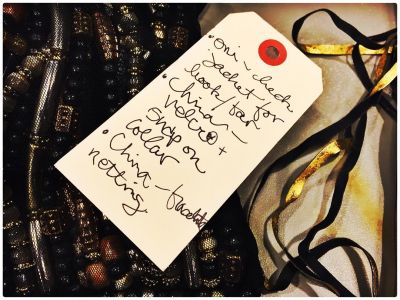 • Oni - check
jacket for
hook/bar
• China -
velcro +
snap on
collar
• China -
netting.